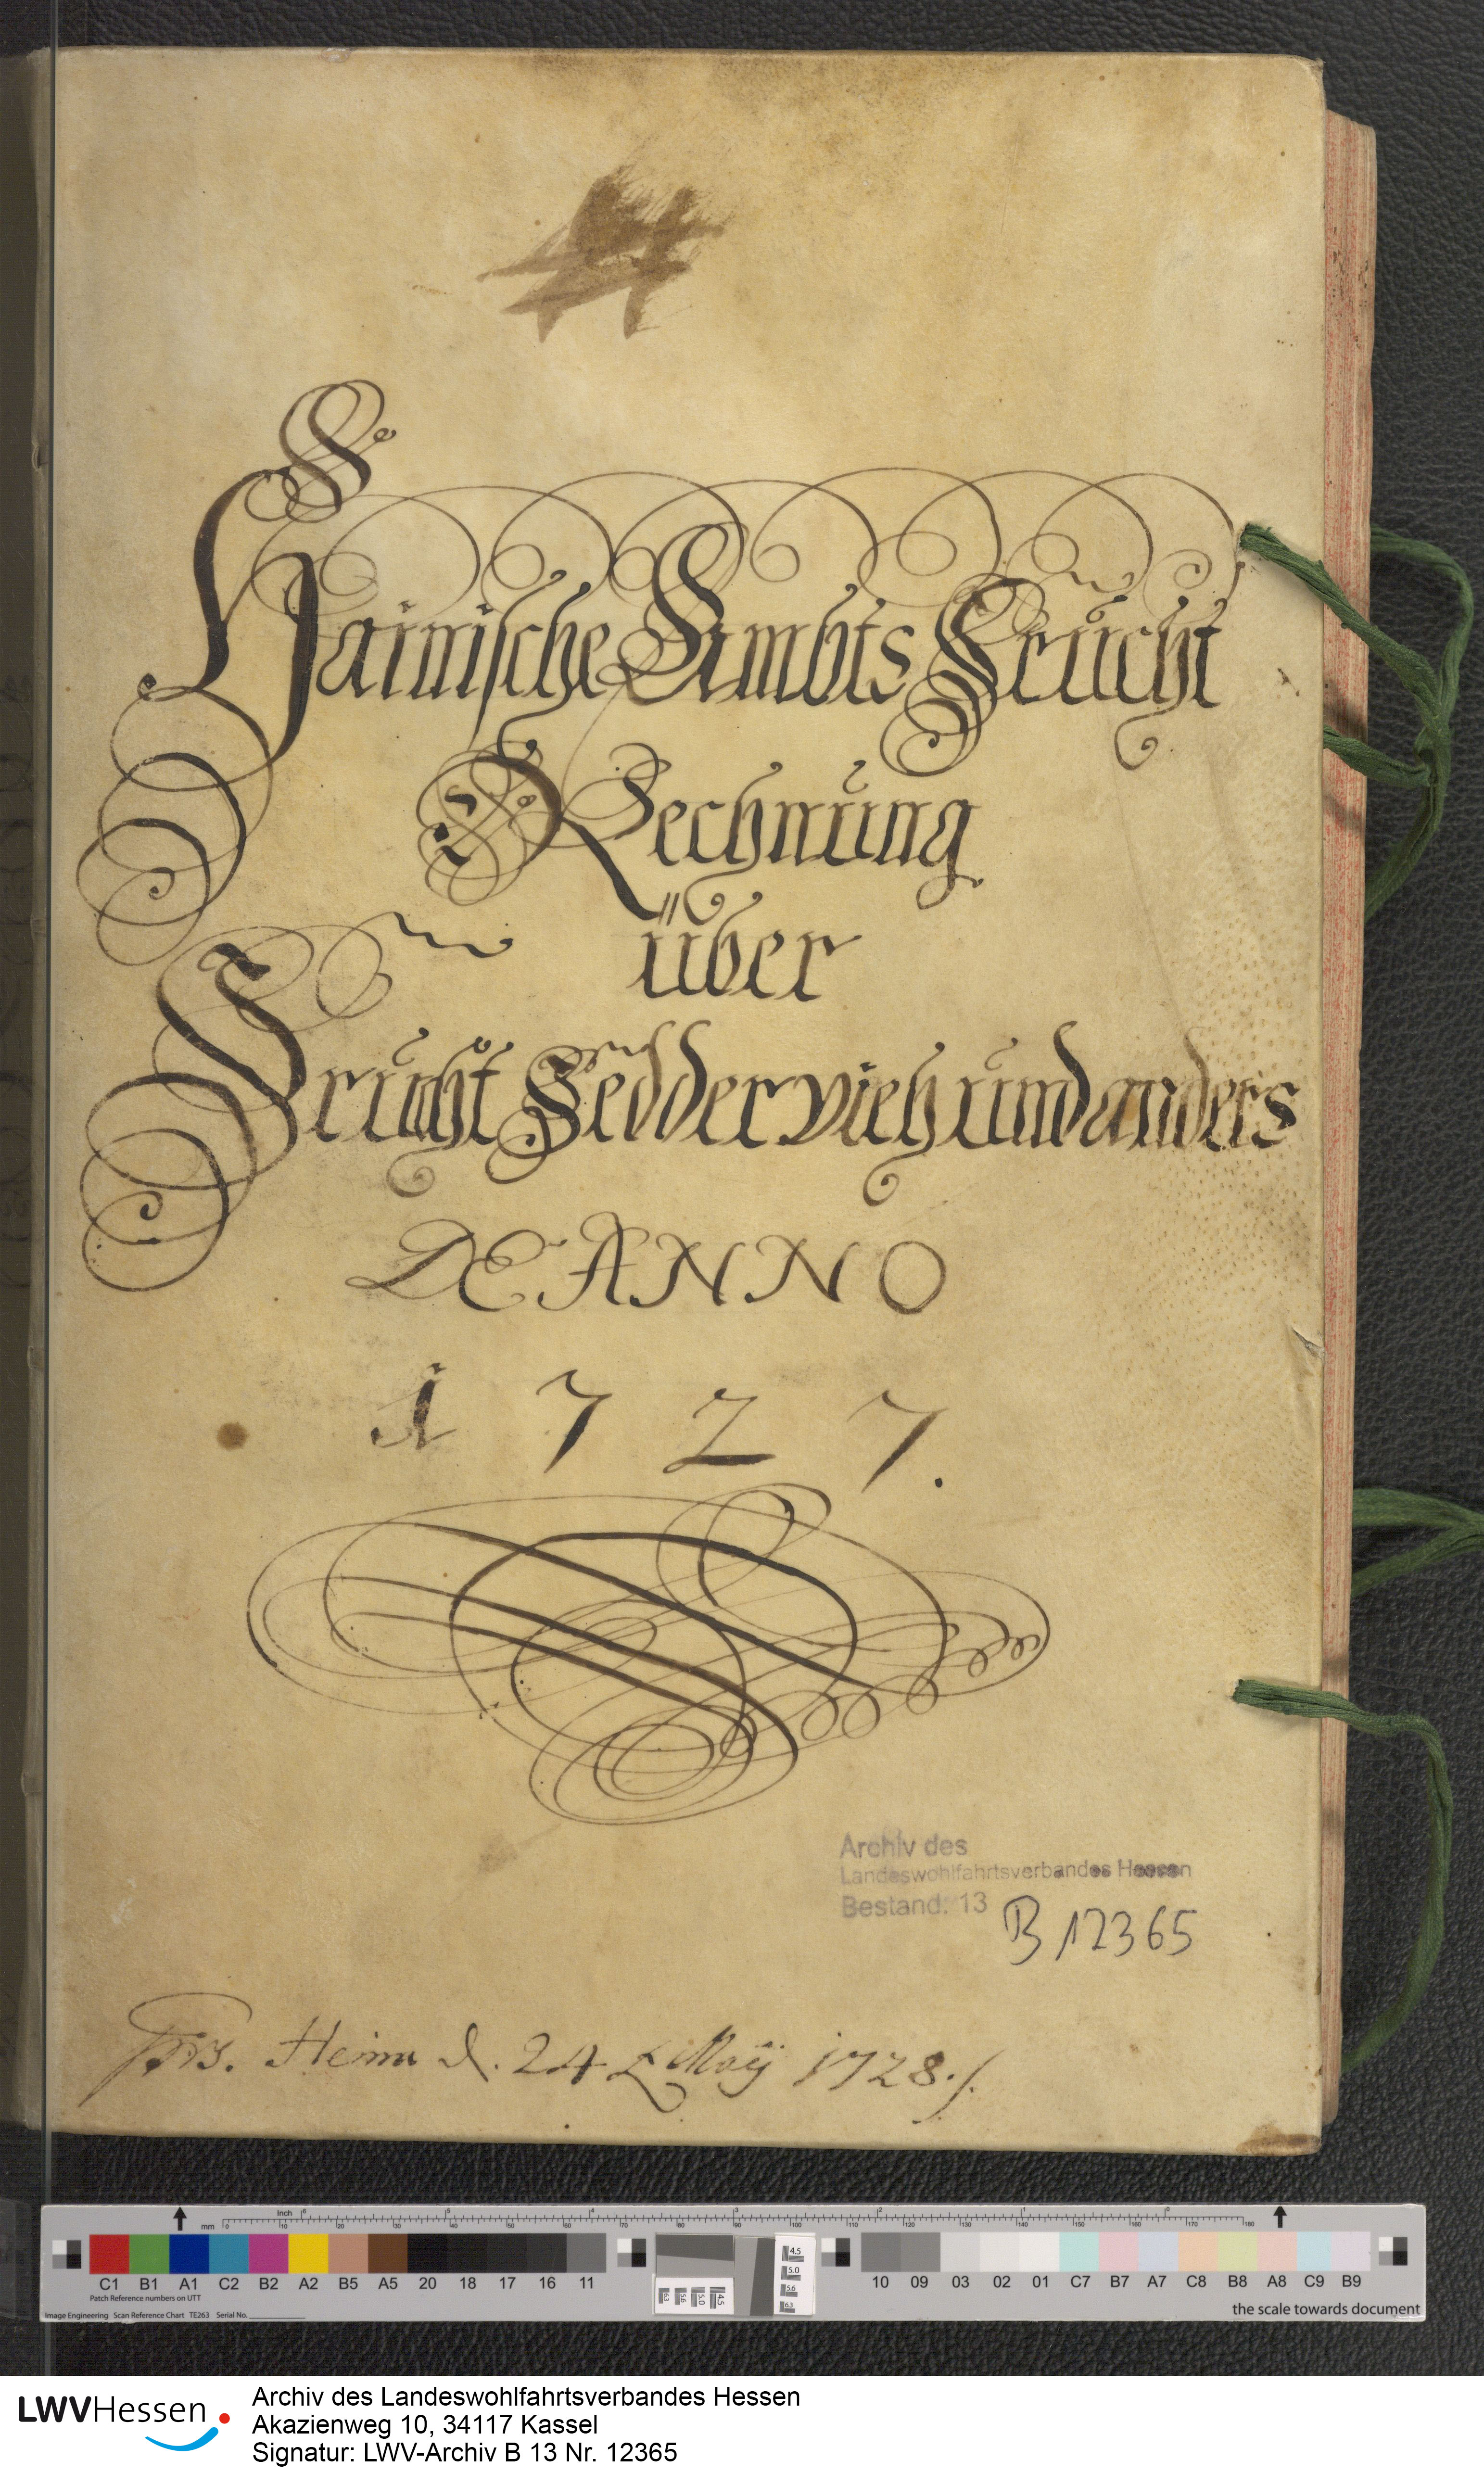 Hainische Ambts Frucht
Rechnung
über
Frucht Fedder vieh und anders
DE ANNO
1727.
Archiv des
Landeswohlfahrtsverbandes Hessen
Bestand: 13
B 12365
24 t Maÿ 1728./.
mm
inch
C1 B1 A1 C2 B2 A2 B5 A5 20 18 17 16 11 10 09 03 02 01 C7 B7 A7 C8 B8 A8 C9 B9
Patch Reference numbers on UTT
Image Engineering Scan Reference Chart TE263 Serial No.
the scale towards document
LWVHessen
Archiv des Landeswohlfahrtsverbandes Hessen
Akazienweg 10, 34117 Kassel
Signatur: LWV-Archiv B 13 Nr. 12365